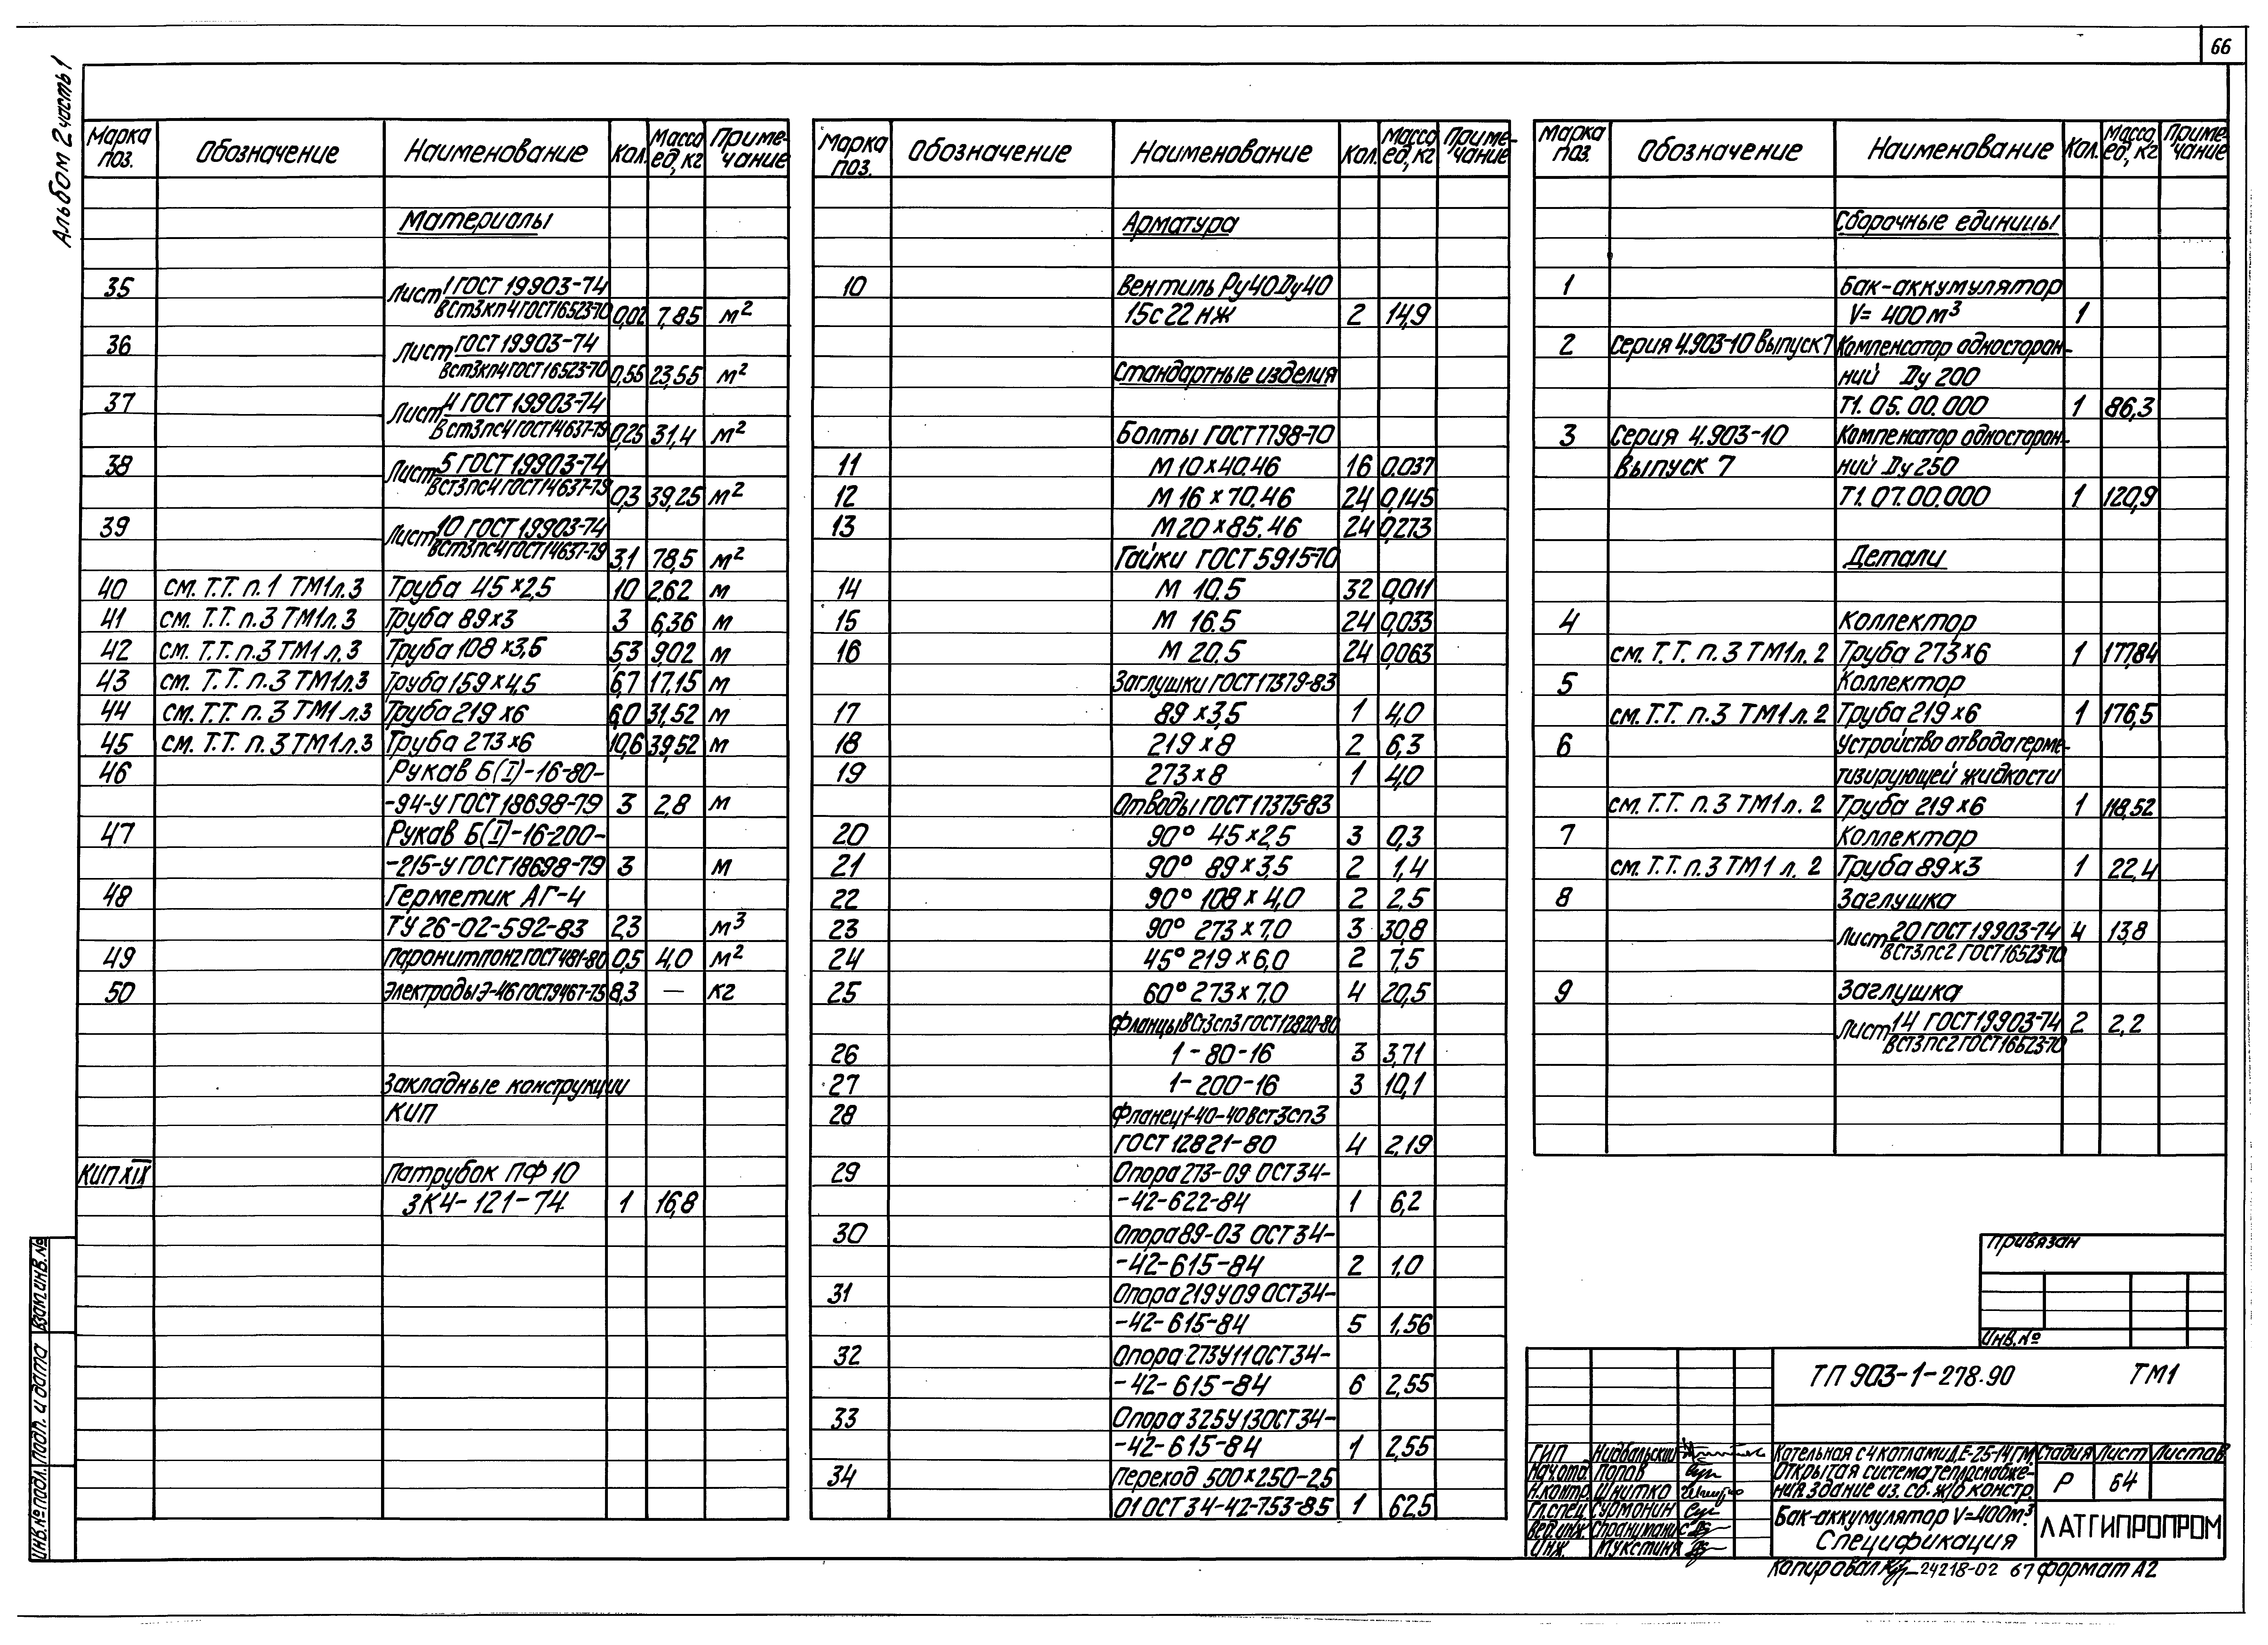 66
Альбом 2 часть 1
Марка поз. Обозначение Наименование Кол. Масса ед, кг Приме-чание
Материалы
35 Лист 1 ГОСТ 19903-74
ВСт3кп4 ГОСТ 16523-70 0,02 7,85 м²
36 Лист ГОСТ 19903-74
ВСт3кп4 ГОСТ 16523-70 0,55 23,55 м²
37 Лист 4 ГОСТ 19903-74
ВСт3пс4 ГОСТ 14637-79 0,25 31,4 м²
38 Лист 5 ГОСТ 19903-74
ВСт3пс4 ГОСТ 14637-79 0,3 39,25 м²
39 Лист 10 ГОСТ 19903-74
ВСт3пс4 ГОСТ 14637-79 3,1 78,5 м²
40 см. Т.Т. п.1 ТМ1 л.3 Труба 45×2,5 10 2,62 м
41 см. Т.Т. п.3 ТМ1 л.3 Труба 89×3 3 6,36 м
42 см. Т.Т. п.3 ТМ1 л.3 Труба 108×3,5 5,3 9,02 м
43 см. Т.Т. п.3 ТМ1 л.3 Труба 159×4,5 6,7 17,15 м
44 см. Т.Т. п.3 ТМ1 л.3 Труба 219×6 6,0 31,52 м
45 см. Т.Т. п.3 ТМ1 л.3 Труба 273×6 10,6 39,52 м
46 Рукав Б(I)-16-80-
-94-У ГОСТ 18698-79 3 2,8 м
47 Рукав Б(I)-16-200-
-215-У ГОСТ 18698-79 3 м
48 Герметик АГ-4
ТУ 26-02-592-83 2,3 м³
49 Паронит ПОН2 ГОСТ 481-80 0,5 4,0 м²
50 Электроды Э-46 ГОСТ 9467-75 8,3 — кг
Закладные конструкции
КИП
КИП XIX Патрубок ПФ 10
ЗК4-121-74 1 16,8
Марка поз. Обозначение Наименование Кол. Масса ед, кг Приме-чание
Арматура
10 Вентиль Ру40 Ду40
15с22нж 2 14,9
Стандартные изделия
Болты ГОСТ 7798-70
11 М10×40.46 16 0,037
12 М16×70.46 24 0,145
13 М20×85.46 24 0,273
Гайки ГОСТ 5915-70
14 М 10.5 32 0,011
15 М 16.5 24 0,033
16 М 20.5 24 0,063
Заглушки ГОСТ 17379-83
17 89×3,5 1 4,0
18 219×8 2 6,3
19 273×8 1 4,0
Отводы ГОСТ 17375-83
20 90° 45×2,5 3 0,3
21 90° 89×3,5 2 1,4
22 90° 108×4,0 2 2,5
23 90° 273×7,0 3 30,8
24 45° 219×6,0 2 7,5
25 60° 273×7,0 4 20,5
Фланцы ВСт3сп3 ГОСТ 12820-80
26 1-80-16 3 3,71
27 1-200-16 3 10,1
28 Фланец 1-40-40 ВСт3сп3
ГОСТ 12821-80 4 2,19
29 Опора 273-09 ОСТ 34-
-42-622-84 1 6,2
30 Опора 89-03 ОСТ 34-
-42-615-84 2 1,0
31 Опора 219У09 ОСТ 34-
-42-615-84 5 1,56
32 Опора 273У11 ОСТ 34-
-42-615-84 6 2,55
33 Опора 325У13 ОСТ 34-
-42-615-84 1 2,55
34 Переход 500×250-2,5
01 ОСТ 34-42-753-85 1 62,5
Марка поз. Обозначение Наименование Кол. Масса ед, кг Приме-чание
Сборочные единицы
1 Бак-аккумулятор
V= 400 м³ 1
2 Серия 4.903-10 Выпуск 7 Компенсатор односторон-
ний Ду 200
Т1. 05. 00. 000 1 86,3
3 Серия 4.903-10 Компенсатор односторон-
Выпуск 7 ний Ду 250
Т1. 07. 00. 000 1 120,9
Детали
4 Коллектор
см. Т.Т. п.3 ТМ1 л. 2 Труба 273×6 1 177,84
5 Коллектор
см. Т.Т. п.3 ТМ1 л. 2 Труба 219×6 1 176,5
6 Устройство отвода герме-
тизирующей жидкости
см. Т.Т. п.3 ТМ1 л. 2 Труба 219×6 1 118,52
7 Коллектор
см. Т.Т. п.3 ТМ1 л. 2 Труба 89×3 1 22,4
8 Заглушка
Лист 20 ГОСТ 19903-74 4 13,8
ВСт3пс2 ГОСТ 16523-70
9 Заглушка
Лист 14 ГОСТ 19903-74 2 2,2
ВСт3пс2 ГОСТ 16523-70
Привязан
Инв.№
ТП 903-1-278.90 ТМ1
ГИП Нидбальский
Нач.отд. Попов
Н.контр. Шнитко
Гл.спец. Сурмонин
Вед.инж.
Инж. Мукстиня
Котельная с 4 котлами ДЕ-25-14 ГМ.
Открытая система теплоснабже-
ния. Здание из сб. ж/б констр.
Стадия Лист Листов
Р 64
Бак-аккумулятор V=400м³.
Спецификация
ЛАТГИПРОПРОМ
Копировал 24218-02 67 формат А2
Инв.№подл. Подп. и дата Взам.инв.№